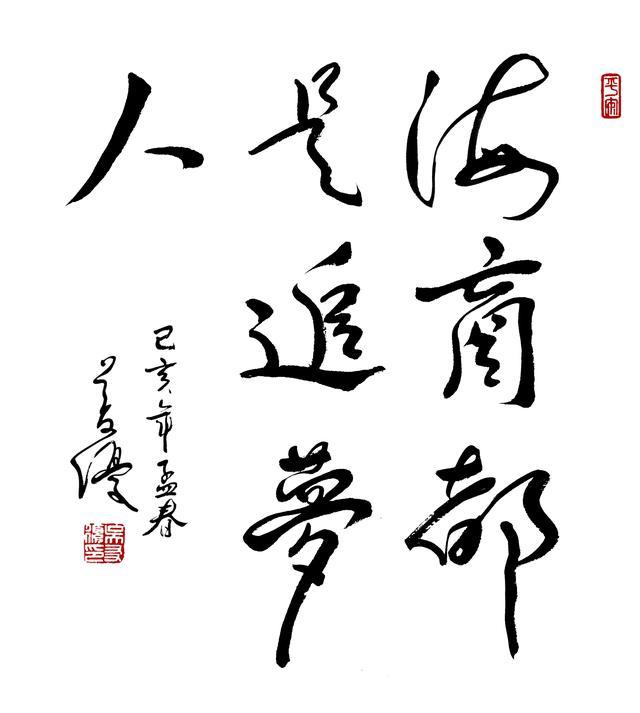 海商都
是追夢
人
己亥年孟春